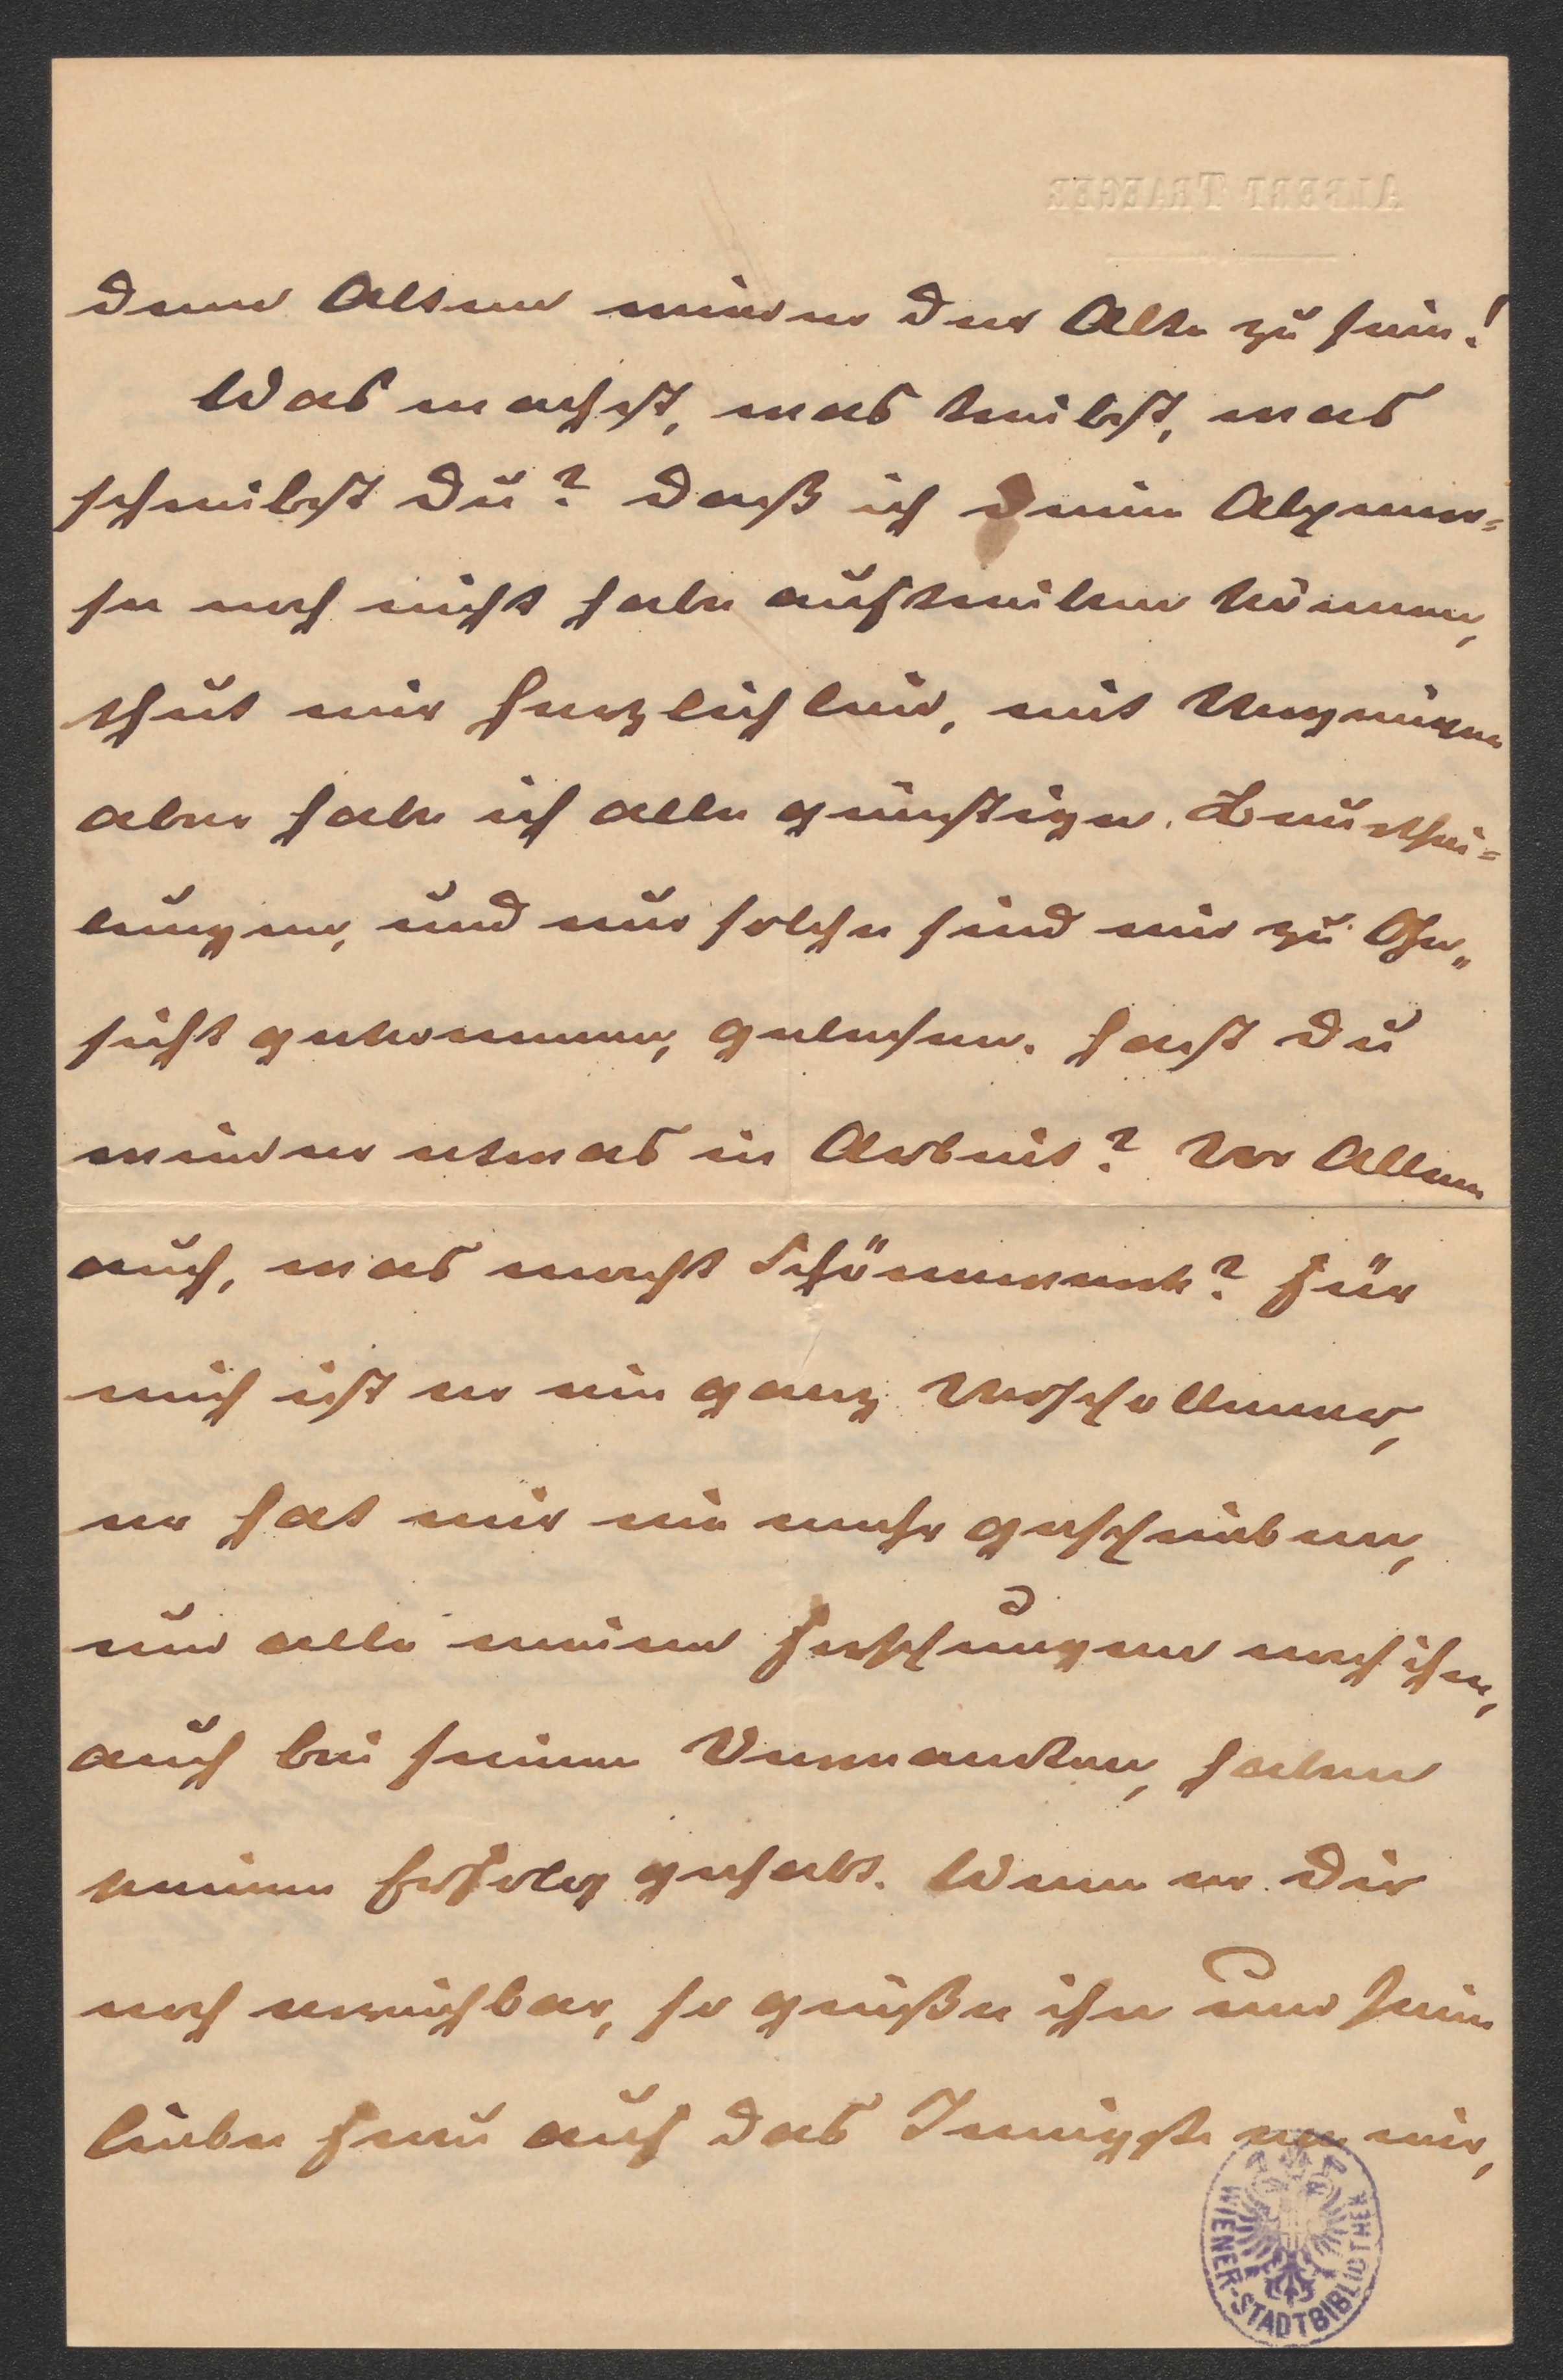 ALBERT TRAEGER
dem Alten wieder der Alte zu sein!
Was machst, was treibst, was
schreibst Du? Daß ich Deine Alpenro=
se noch nicht habe auftreiben können,
thut mir herzlich leid, mit Vergnügen
aber habe ich alle günstigen Beurthei=
lungen, und nur solche sind mir zu Ge„
sicht gekommen, gelesen. Hast Du
wieder etwas in Arbeit? Vor Allem
auch, was macht? Für
mich ist er ein ganz Verschollener,
er hat mir nie mehr geschrieben,
und alle meine Forschungen nach ihm,
auch bei seinen Verwandten, haben
keinen Erfolg gehabt. Wenn er Dir
noch erreichbar, so grüße ihn und seine
liebe Frau auf das Innigste von mir,
WIENER-STADTBIBLIOTHEK